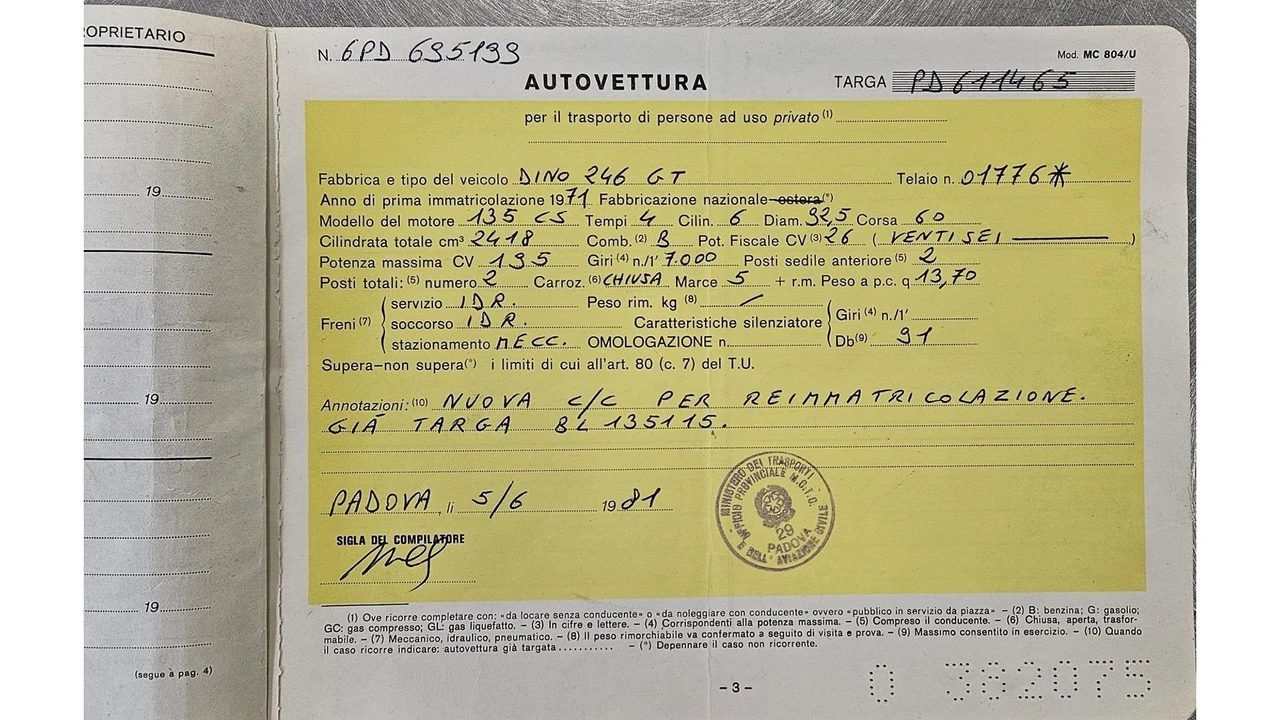 ROPRIETARIO
19
19
19
(segue a pag. 4)
N. 6PD 695199
Mod. MC 804/U
AUTOVETTURA
TARGA PD611465
per il trasporto di persone ad uso privato (1)
Fabbrica e tipo del veicolo DINO 246 GT Telaio n. 01776*
Anno di prima immatricolazione 1971 Fabbricazione nazionale-estera(*)
Modello del motore 135 CS Tempi 4 Cilin. 6 Diam. 92,5 Corsa 60
Cilindrata totale cm³ 2418 Comb. (2) B Pot. Fiscale CV (3) 26 ( VENTISEI )
Potenza massima CV 195 Giri (4) n./1' 7.000 Posti sedile anteriore (5) 2
Posti totali: (5) numero 2 Carroz. (6) CHIUSA Marce 5 + r.m. Peso a p.c. q 13,70
Freni (7) servizio IDR. Peso rim. kg (8) /
soccorso IDR. Caratteristiche silenziatore Giri (4) n./1'
stazionamento MECC. OMOLOGAZIONE n. Db (9) 91
Supera-non supera(*) i limiti di cui all'art. 80 (c. 7) del T.U.
Annotazioni: (10) NUOVA C/C PER REIMMATRICOLAZIONE.
GIÀ TARGA BL 135115.
PADOVA, lì 5/6 1981
SIGLA DEL COMPILATORE
MINISTERO DEI TRASPORTI
UFFICIO PROVINCIALE M.C.T.C.
29
PADOVA
E DELL'AVIAZIONE CIVILE
(1) Ove ricorre completare con: «da locare senza conducente» o «da noleggiare con conducente» ovvero «pubblico in servizio da piazza» – (2) B: benzina; G: gasolio;
GC: gas compresso; GL: gas liquefatto. – (3) In cifre e lettere. – (4) Corrispondenti alla potenza massima. – (5) Compreso il conducente. – (6) Chiusa, aperta, trasfor-
mabile. – (7) Meccanico, idraulico, pneumatico. – (8) Il peso rimorchiabile va confermato a seguito di visita e prova. – (9) Massimo consentito in esercizio. – (10) Quando
il caso ricorre indicare: autovettura già targata .......... – (*) Depennare il caso non ricorrente.
– 3 –
0 382075